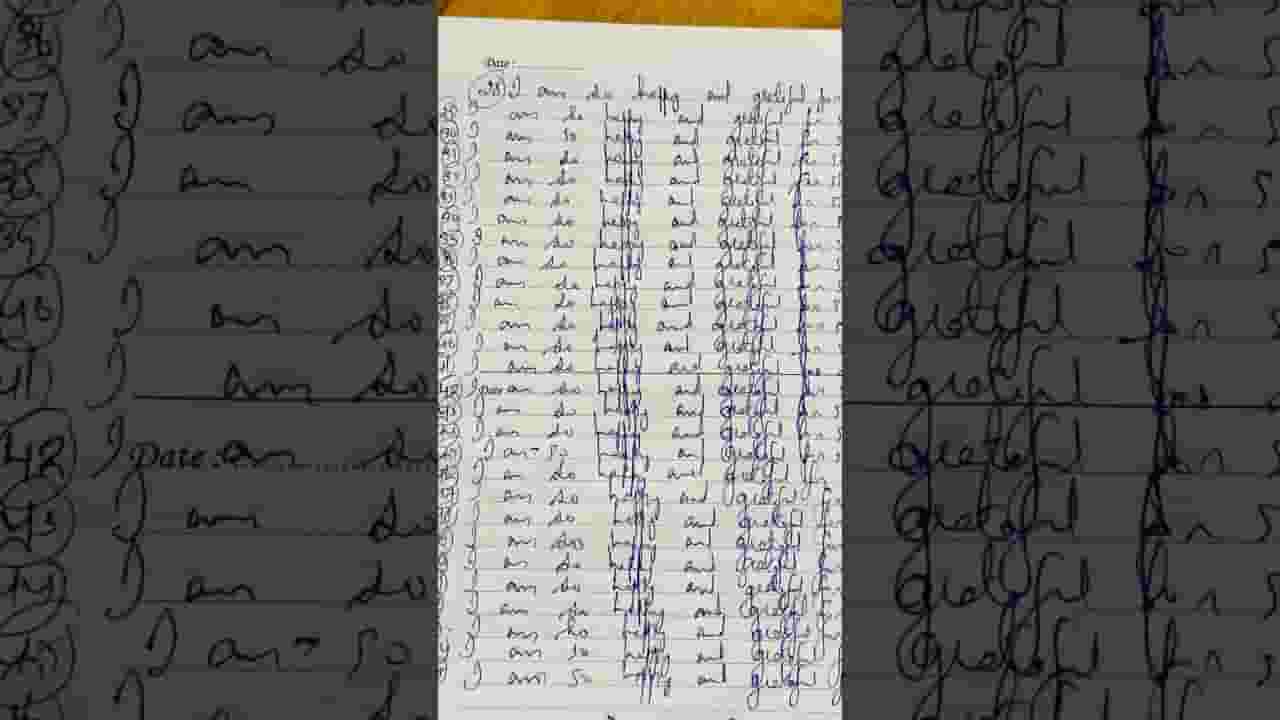 Date:
28) I am so happy and grateful for
I am so happy and grateful for 5
I am so happy and grateful for 5
I am so happy and grateful for 5
I am so happy and grateful for 5
I am so happy and grateful for 5
I am so happy and grateful for 5
I am so happy and grateful for 5
36 I am so happy and grateful for 5
37 I am so happy and grateful for 5
38 I am so happy and grateful for 5
39 I am so happy and grateful for 5
40 I am so happy and grateful for 5
41 I am so happy and grateful for 5
42 I Date: am so happy and grateful for 5
43 I am so happy and grateful for 5
44 I am so happy and grateful for 5
45 I am so happy and grateful for 5
I am so happy and grateful for
I am so happy and grateful for
I am so happy and grateful for
I am so happy and grateful for
I am so happy and grateful for
I am so happy and grateful for
I am so happy and grateful for
I am so happy and grateful for
I am so happy and grateful
I am so happy and grateful